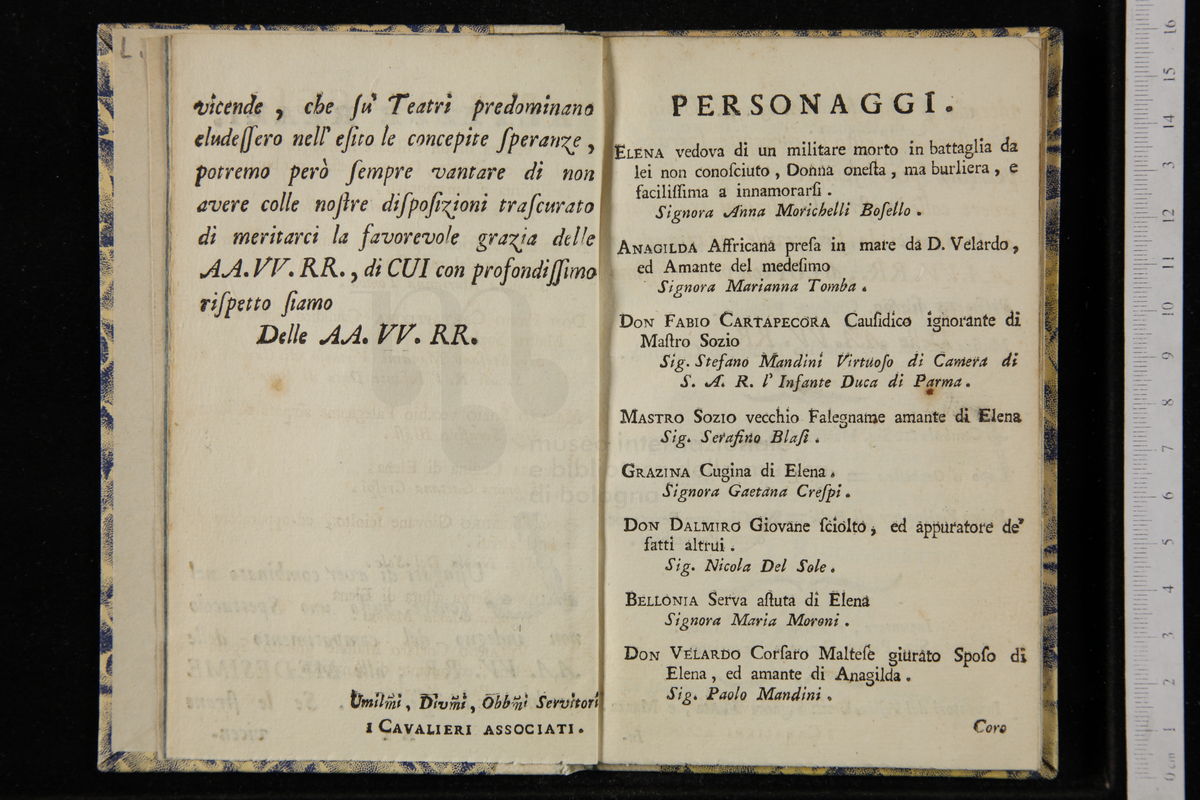 vicende, che ſu' Teatri predominano
eludeſſero nell' eſito le concepite ſperanze,
potremo però ſempre vantare di non
avere colle noſtre diſpoſizioni traſcurato
di meritarci la favorevole grazia delle
AA. VV. RR., di CUI con profondiſſimo
riſpetto ſiamo
Delle AA. VV. RR.
Umilm̃i, Divm̃i, Obbm̃i Servitori
I CAVALIERI ASSOCIATI.
PERSONAGGI.
ELENA vedova di un militare morto in battaglia da
lei non conoſciuto, Donna oneſta, ma burliera, e
faciliſſima a innamorarſi.
Signora Anna Morichelli Boſello.
ANAGILDA Affricana preſa in mare da D. Velardo,
ed Amante del medeſimo
Signora Marianna Tomba.
DON FABIO CARTAPECORA Cauſidico ignorante di
Maſtro Sozio
Sig. Stefano Mandini Virtuoſo di Camera di
S. A. R. l' Infante Duca di Parma.
MASTRO SOZIO vecchio Falegname amante di Elena
Sig. Serafino Blaſi.
GRAZINA Cugina di Elena.
Signora Gaetana Creſpi.
DON DALMIRO Giovane ſciolto, ed appuratore de'
fatti altrui.
Sig. Nicola Del Sole.
BELLONIA Serva aſtuta di Elena
Signora Maria Moroni.
DON VELARDO Corſaro Malteſe giurato Spoſo di
Elena, ed amante di Anagilda.
Sig. Paolo Mandini.
Coro
museo internazionale
e biblio
di bologna
L.
0 cm 1 2 3 4 5 6 7 8 9 10 11 12 13 14 15 16